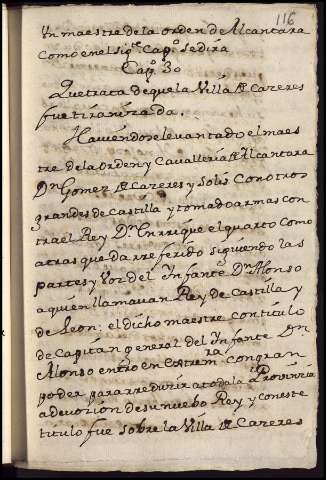 116
Un maestre de la orden de Alcantara
como en el sigᵉ Capº se dira
Capº 30
Que trata de que la Villa de Cazeres
fue tiranizada.
Haviendose levantado el maes
tre de la Orden y Cavalleria de Alcantara
Dⁿ Gomez de Cazeres y Solis con otros
grandes de Castilla y tomado armas con
tra el Rey Dⁿ Enrrique el quarto como
atras queda referido siguiendo las
partes y voz del Ynfante Dⁿ Alonso
a quien llamavan Rey de Castilla y
de Leon; el dicho maestre con titulo
de Capitan general del Ynfante Dⁿ
Alonso entro en Estremʳᵃ con gran
poder para reduzir a toda la Provincia
a devozion de su nuebo Rey y con este
titulo fue sobre la Villa de Cazeres